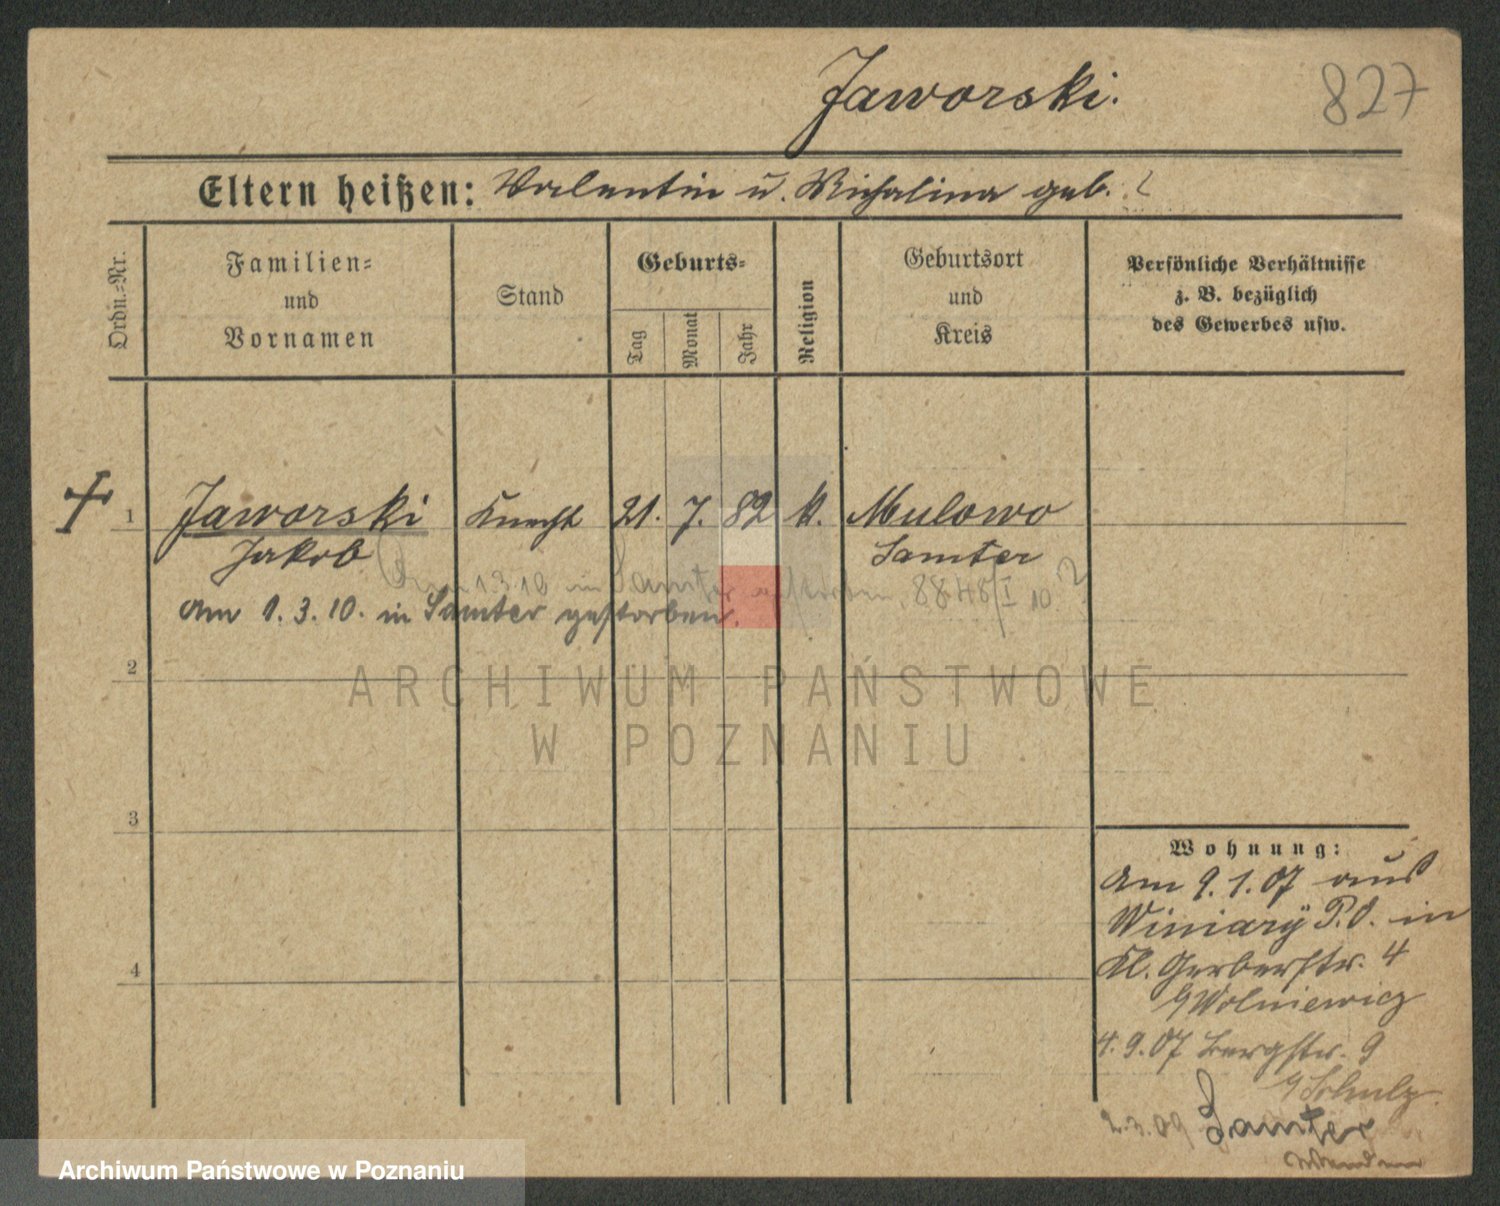 Jaworski.
827
Eltern heißen: Valentin u. Michalina geb. ?
Ordn.-Nr.
Familien-
und
Vornamen
Stand
Geburts-
Tag
Monat
Jahr
Religion
Geburtsort
und
Kreis
Persönliche Verhältnisse
z. B. bezüglich
des Gewerbes usw.
1 Jaworski Knecht 21. 7. 82 k. Mulowo
Jakob Samter
1.3.10 in Samter gestorben. 8848/I 10
Am 1. 3. 10. in Samter gestorben.
2
ARCHIWUM PAŃSTWOWE
W POZNANIU
3
4
Wohnung:
Am 9. 1. 07 aus
Winiary P. O. in
Kl. Gerberstr. 4
b/Wolniewicz
4. 9. 07 Bergstr. 9
b/Schulz.
2. 3. 09 Samter
Archiwum Państwowe w Poznaniu